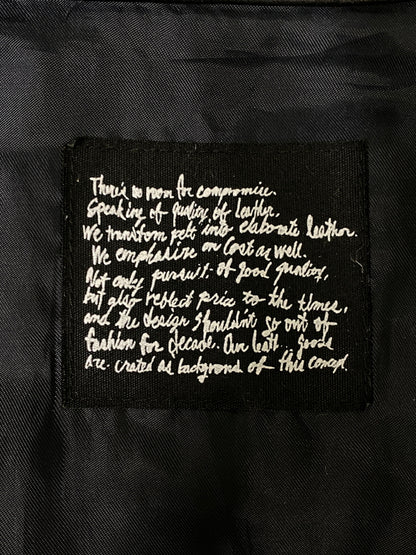 There's no room for compromise.
Speaking of quality of leather,
We transform pelts into elaborate leather.
We emphasize on cost as well.
Not only pursuit of good quality,
but also reflect price to the times,
and the design shouldn't go out of
fashion for decade. Our goods
are crated as background of this concept.